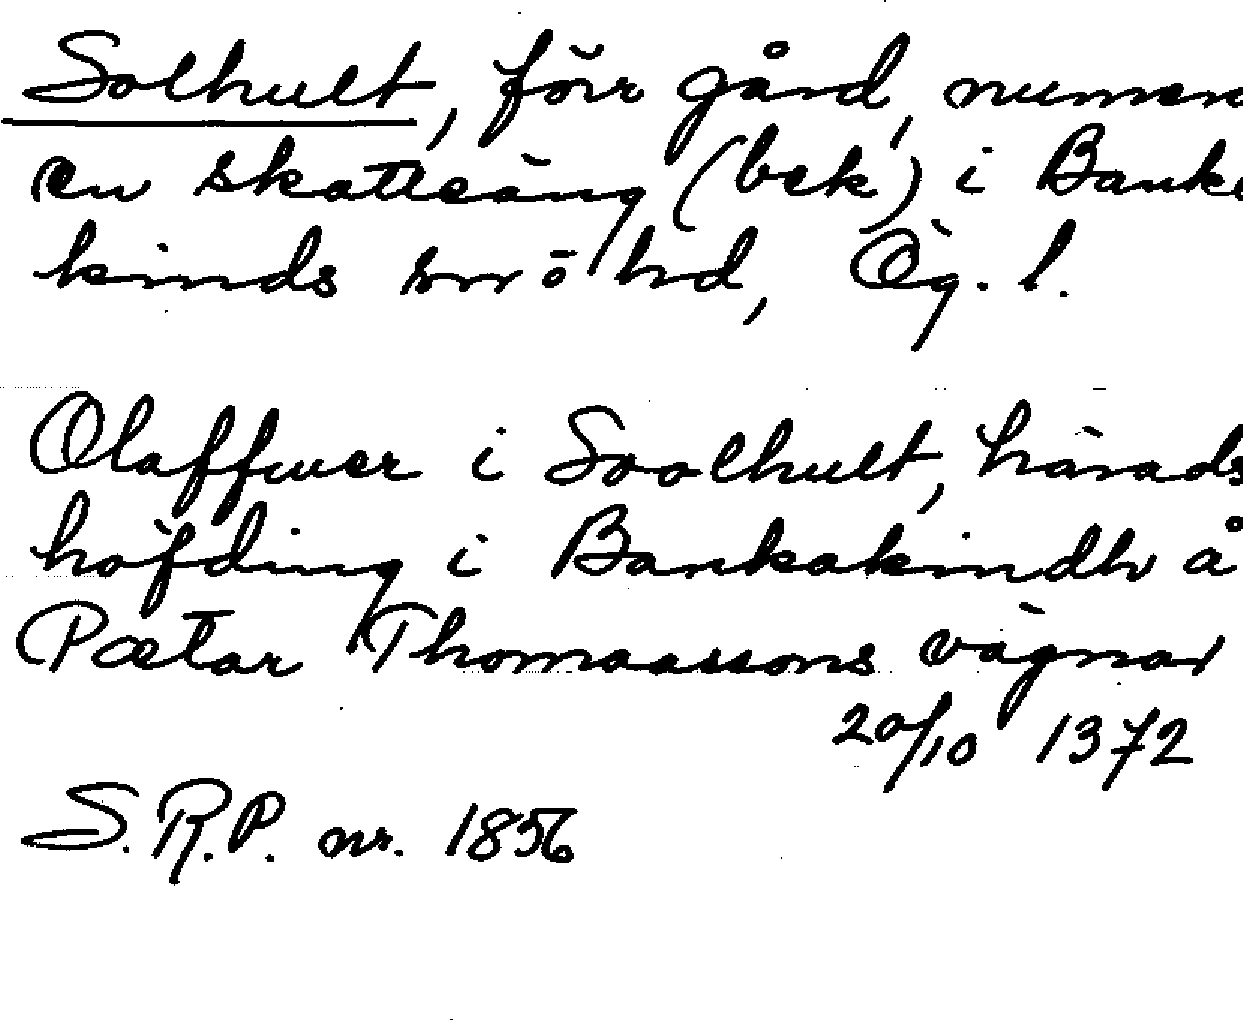 Solhult, förr gård, numera
en skatteäng (bek) i Banke
kinds sn o hd, Ög. l.
Olaffwer i Soolhult, härads
höfding i Bankakindh å
Pætar Thomaassons vägnar
20/10 1372
S.R.P. nr. 1856